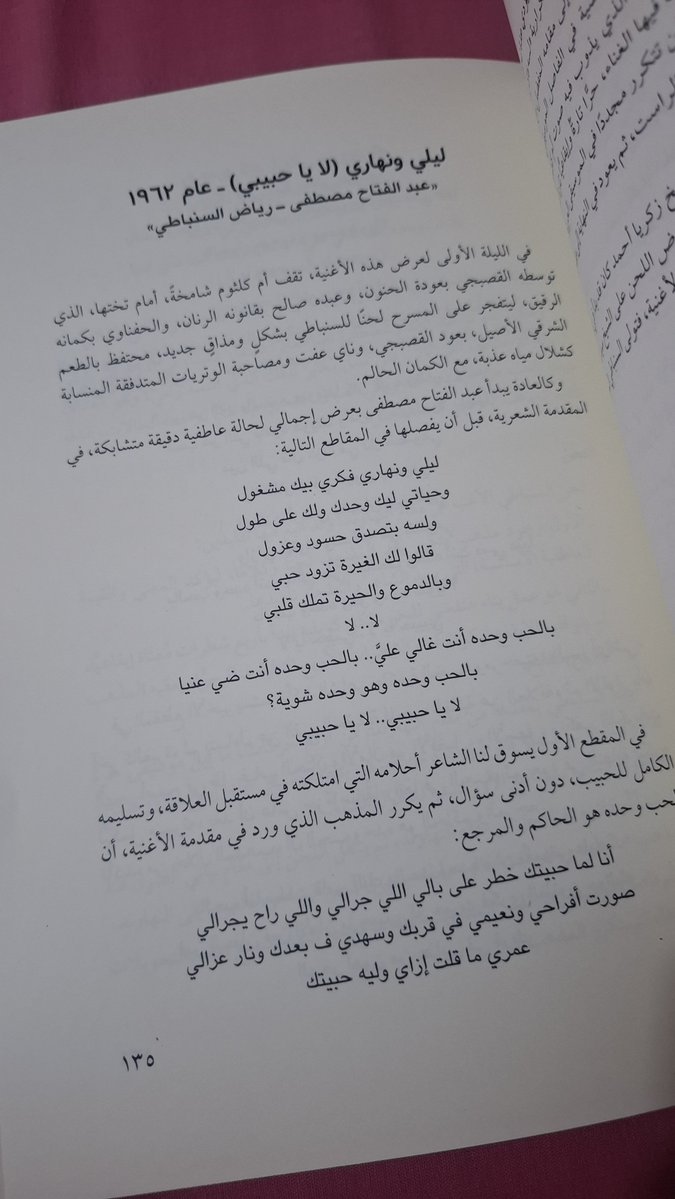 ليلي ونهاري (لا يا حبيبي) - عام ١٩٦٢
«عبد الفتاح مصطفى - رياض السنباطي»
في الليلة الأولى لعرض هذه الأغنية، تقف أم كلثوم شامخةً، أمام تختها، الذي
توسطه القصبجي بعودة الحنون، وعبده صالح بقانونه الرنان، والحفناوي بكمانه
الرقيق، ليتفجر على المسرح لحنًا للسنباطي بشكلٍ ومذاقٍ جديد، محتفظ بالطعم
الشرقي الأصيل، بعود القصبجي، وناي عفت ومصاحبة الوتريات المتدفقة المنسابة
كشلال مياه عذبة، مع الكمان الحالم.
وكالعادة يبدأ عبد الفتاح مصطفى بعرض إجمالي لحالة عاطفية دقيقة متشابكة، في
المقدمة الشعرية، قبل أن يفصلها في المقاطع التالية:
ليلي ونهاري فكري بيك مشغول
وحياتي ليك وحدك ولك على طول
ولسه بتصدق حسود وعزول
قالوا لك الغيرة تزود حبي
وبالدموع والحيرة تملك قلبي
لا.. لا
بالحب وحده أنت غالي عليَّ.. بالحب وحده أنت ضي عنيا
بالحب وحده وهو وحده شوية؟
لا يا حبيبي.. لا يا حبيبي
في المقطع الأول يسوق لنا الشاعر أحلامه التي امتلكته في مستقبل العلاقة، وتسليمه
الكامل للحبيب، دون أدنى سؤال، ثم يكرر المذهب الذي ورد في مقدمة الأغنية، أن
لحب وحده هو الحاكم والمرجع:
أنا لما حبيتك خطر على بالي اللي جرالي واللي راح يجرالي
صورت أفراحي ونعيمي في قربك وسهدي ف بعدك ونار عزالي
عمري ما قلت إزاي وليه حبيتك
١٣٥